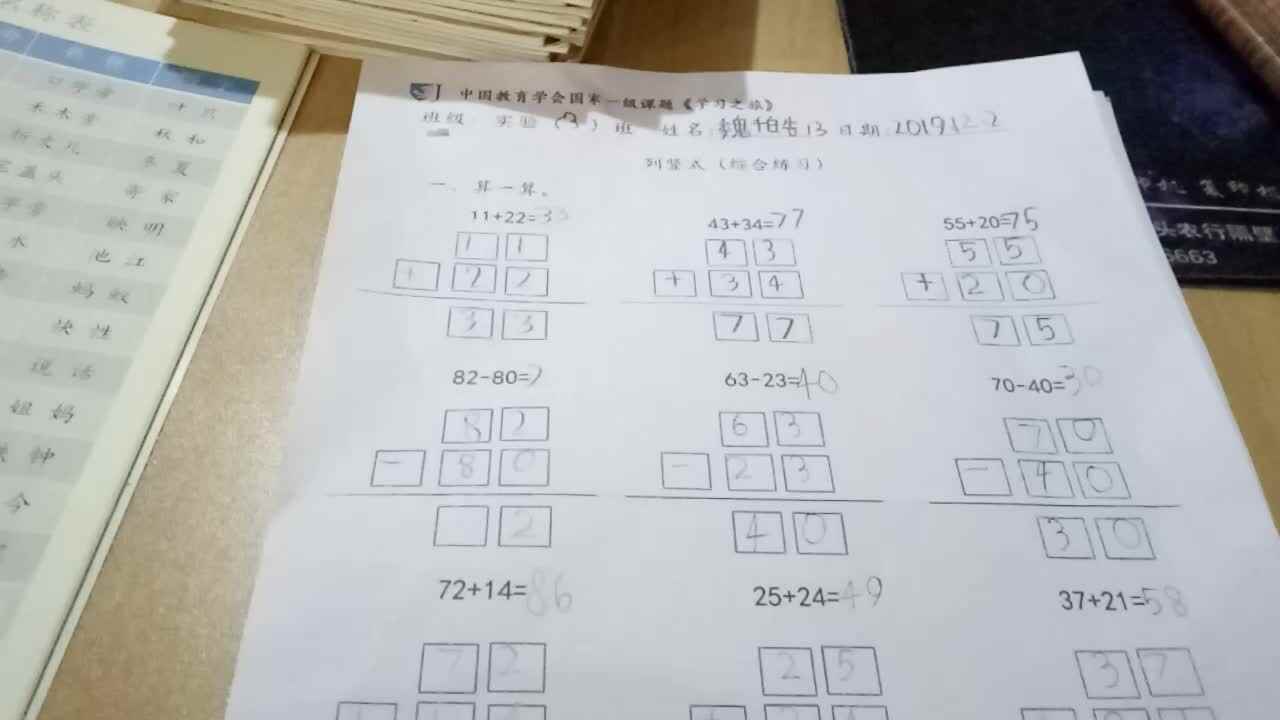 中国教育学会国家一级课题《学习之旅》
班级: 实验(3)班 姓名:魏柏浩13日期:2019.12.2
列竖式(综合练习)
一、算一算。
11+22=33 43+34=77 55+20=75
1 1 4 3 5 5
+ 2 2 + 3 4 + 2 0
3 3 7 7 7 5
82-80=2 63-23=40 70-40=30
8 2 6 3 7 0
- 8 0 - 2 3 - 4 0
2 4 0 3 0
72+14=86 25+24=49 37+21=58
7 2 2 5 3 7
称表
禾木 秋和
冬夏
奇家
平常 映明
水 池江
蚂蚁
快性
说话
姐妈
钟
今
复印机
头农行隔壁
6663